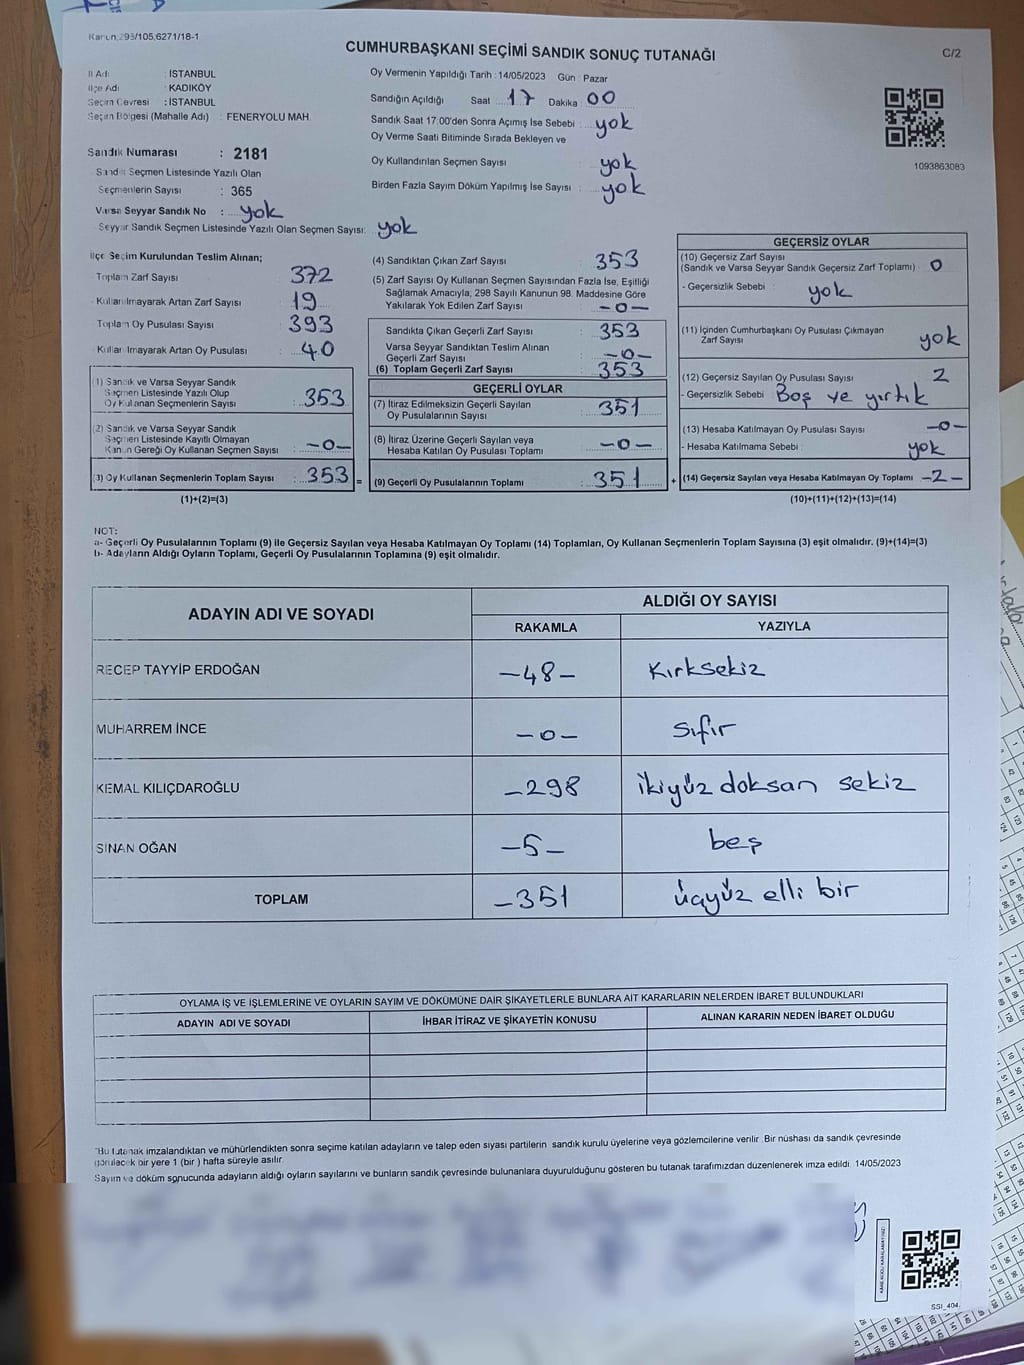 Kanun 298/105,6271/18-1
CUMHURBAŞKANI SEÇİMİ SANDIK SONUÇ TUTANAĞI
C/2
İl Adı : İSTANBUL
İlçe Adı : KADIKÖY
Seçim Çevresi : İSTANBUL
Seçim Bölgesi (Mahalle Adı) : FENERYOLU MAH.
Oy Vermenin Yapıldığı Tarih : 14/05/2023 Gün : Pazar
Sandığın Açıldığı Saat 17 Dakika 00
Sandık Saat 17.00'den Sonra Açımış İse Sebebi : yok
Oy Verme Saati Bitiminde Sırada Bekleyen ve
Oy Kullandırılan Seçmen Sayısı yok
Birden Fazla Sayım Döküm Yapılmış İse Sayısı : yok
1093863083
Sandık Numarası : 2181
Sandık Seçmen Listesinde Yazılı Olan
Seçmenlerin Sayısı : 365
Varsa Seyyar Sandık No : yok
Seyyar Sandık Seçmen Listesinde Yazılı Olan Seçmen Sayısı: yok
İlçe Seçim Kurulundan Teslim Alınan;
Toplam Zarf Sayısı : 372
Kullanılmayarak Artan Zarf Sayısı : 19
Toplam Oy Pusulası Sayısı : 393
Kullanılmayarak Artan Oy Pusulası : 40
(1) Sandık ve Varsa Seyyar Sandık
Seçmen Listesinde Yazılı Olup
Oy Kullanan Seçmenlerin Sayısı : 353
(2) Sandık ve Varsa Seyyar Sandık
Seçmen Listesinde Kayıtlı Olmayan
Kanun Gereği Oy Kullanan Seçmen Sayısı : -0-
(3) Oy Kullanan Seçmenlerin Toplam Sayısı : 353 =
(1)+(2)=(3)
(4) Sandıktan Çıkan Zarf Sayısı : 353
(5) Zarf Sayısı Oy Kullanan Seçmen Sayısından Fazla İse, Eşitliği
Sağlamak Amacıyla, 298 Sayılı Kanunun 98. Maddesine Göre
Yakılarak Yok Edilen Zarf Sayısı : -0-
Sandıkta Çıkan Geçerli Zarf Sayısı : 353
Varsa Seyyar Sandıktan Teslim Alınan
Geçerli Zarf Sayısı : -0-
(6) Toplam Geçerli Zarf Sayısı : 353
GEÇERLİ OYLAR
(7) İtiraz Edilmeksizin Geçerli Sayılan
Oy Pusulalarının Sayısı : 351
(8) İtiraz Üzerine Geçerli Sayılan veya
Hesaba Katılan Oy Pusulası Toplamı : -0-
(9) Geçerli Oy Pusulalarının Toplamı : 351 +
GEÇERSİZ OYLAR
(10) Geçersiz Zarf Sayısı
(Sandık ve Varsa Seyyar Sandık Geçersiz Zarf Toplamı) : 0
- Geçersizlik Sebebi : yok
(11) İçinden Cumhurbaşkanı Oy Pusulası Çıkmayan
Zarf Sayısı : yok
(12) Geçersiz Sayılan Oy Pusulası Sayısı : 2
- Geçersizlik Sebebi Boş ve yırtık
(13) Hesaba Katılmayan Oy Pusulası Sayısı : -0-
- Hesaba Katılmama Sebebi : yok
(14) Geçersiz Sayılan veya Hesaba Katılmayan Oy Toplamı -2-
(10)+(11)+(12)+(13)=(14)
NOT:
a- Geçerli Oy Pusulalarının Toplamı (9) ile Geçersiz Sayılan veya Hesaba Katılmayan Oy Toplamı (14) Toplamları, Oy Kullanan Seçmenlerin Toplam Sayısına (3) eşit olmalıdır. (9)+(14)=(3)
b- Adayların Aldığı Oyların Toplamı, Geçerli Oy Pusulalarının Toplamına (9) eşit olmalıdır.
ADAYIN ADI VE SOYADI
ALDIĞI OY SAYISI
RAKAMLA YAZIYLA
RECEP TAYYİP ERDOĞAN -48- Kırksekiz
MUHARREM İNCE -0- sıfır
KEMAL KILIÇDAROĞLU -298 ikiyüz doksan sekiz
SİNAN OĞAN -5- beş
TOPLAM -351 üçyüz elli bir
OYLAMA İŞ VE İŞLEMLERİNE VE OYLARIN SAYIM VE DÖKÜMÜNE DAİR ŞİKAYETLERLE BUNLARA AİT KARARLARIN NELERDEN İBARET BULUNDUKLARI
ADAYIN ADI VE SOYADI İHBAR İTİRAZ VE ŞİKAYETİN KONUSU ALINAN KARARIN NEDEN İBARET OLDUĞU
*Bu tutanak imzalandıktan ve mühürlendikten sonra seçime katılan adayların ve talep eden siyasi partilerin sandık kurulu üyelerine veya gözlemcilerine verilir. Bir nüshası da sandık çevresinde
görülecek bir yere 1 (bir ) hafta süreyle asılır.
Sayım ve döküm sonucunda adayların aldığı oyların sayılarını ve bunların sandık çevresinde bulunanlara duyurulduğunu gösteren bu tutanak tarafımızdan düzenlenerek imza edildi. 14/05/2023
SSI_404